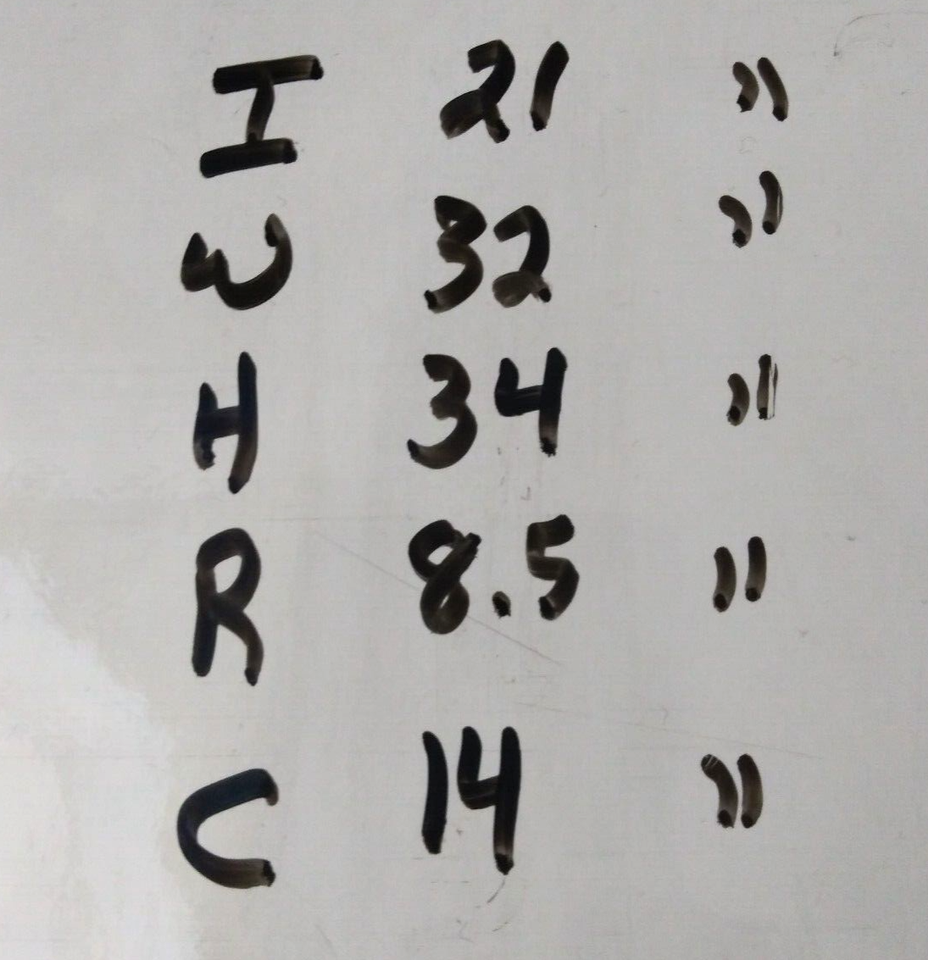 I 21 "
W 32 "
H 34 "
R 8.5 "
C 14 "